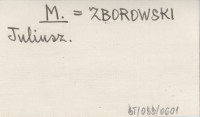 M. = ZBOROWSKI
Juliusz.
BJ/033/0601